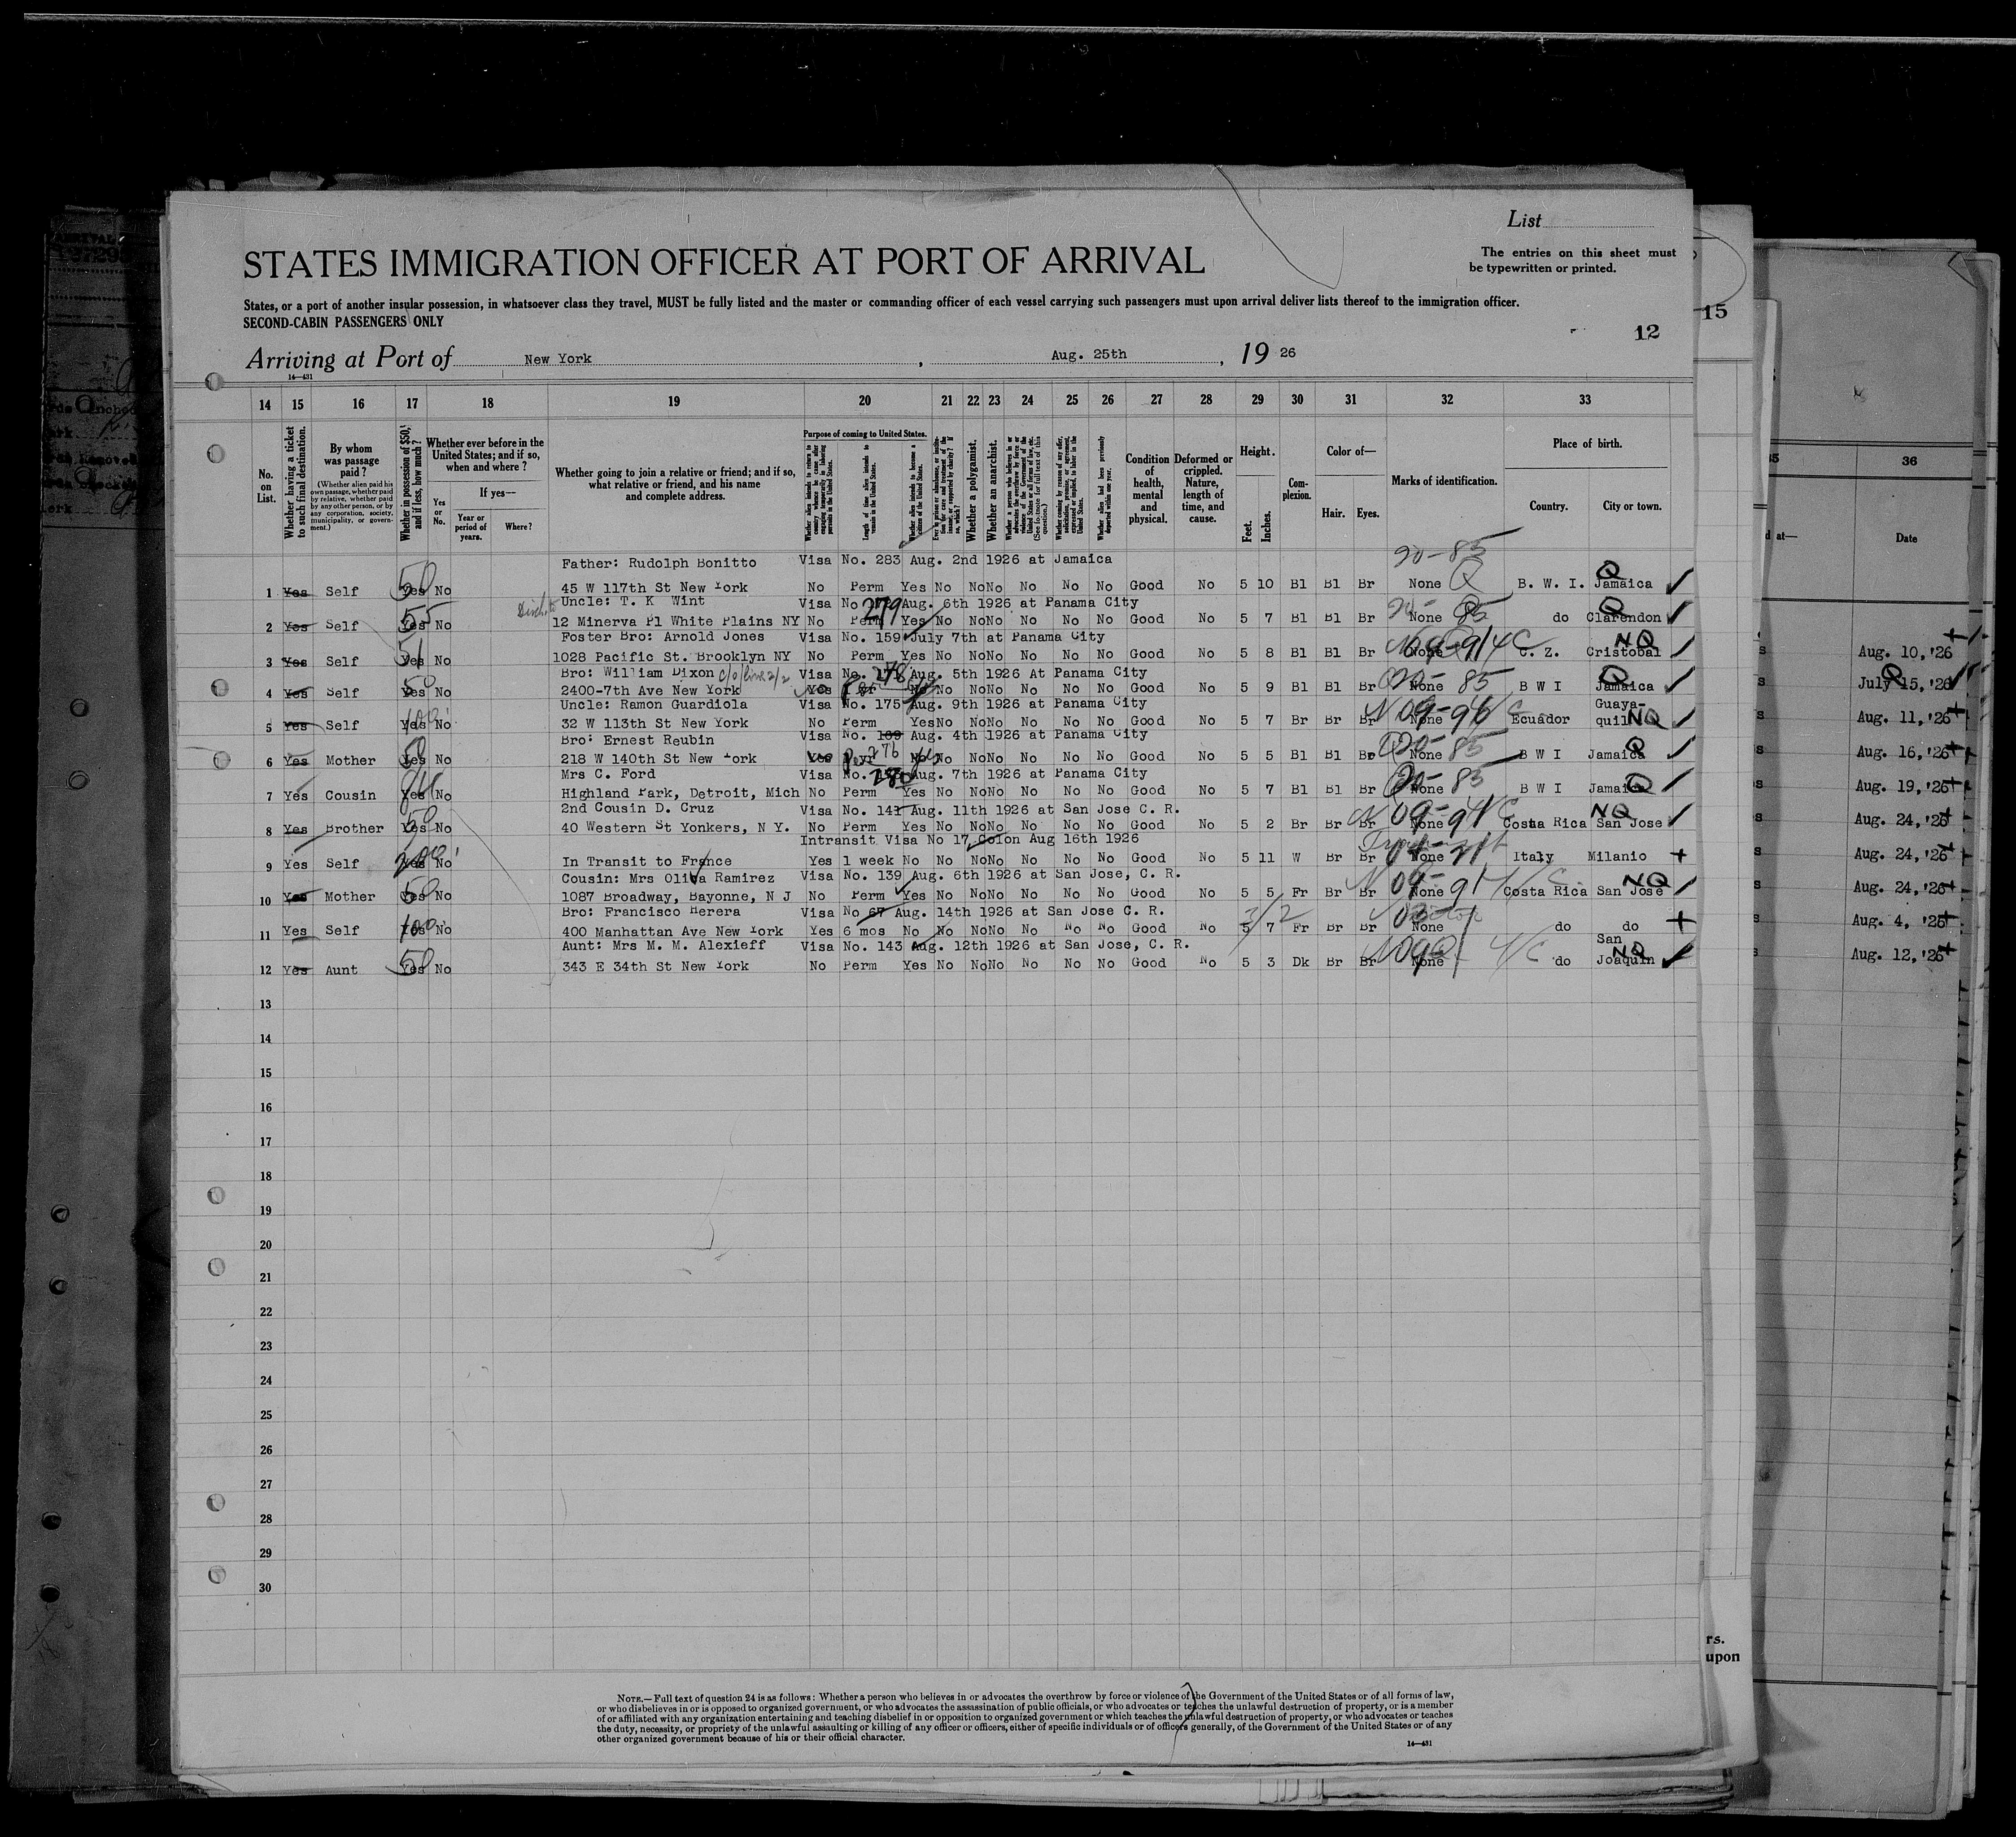 List
STATES IMMIGRATION OFFICER AT PORT OF ARRIVAL
The entries on this sheet must
be typewritten or printed.
States, or a port of another insular possession, in whatsoever class they travel, MUST be fully listed and the master or commanding officer of each vessel carrying such passengers must upon arrival deliver lists thereof to the immigration officer.
SECOND-CABIN PASSENGERS ONLY
15
12
Arriving at Port of New York , Aug. 25th , 19 26
14—431
14 15 16 17 18 19 20 21 22 23 24 25 26 27 28 29 30 31 32 33
36
No. on List.
Whether having a ticket to such final destination.
By whom was passage paid?
(Whether alien paid his own passage, whether paid by relative, whether paid by any other person, or by any corporation, society, municipality, or government.)
Whether in possession of $50, and if less, how much?
Whether ever before in the United States; and if so, when and where?
Yes or No.
If yes—
Year or period of years.
Where?
Whether going to join a relative or friend; and if so, what relative or friend, and his name and complete address.
Purpose of coming to United States.
Length of time alien intends to remain in the United States.
Whether alien intends to become a citizen of the United States.
Whether a polygamist.
Whether an anarchist.
Condition of health, mental and physical.
Deformed or crippled. Nature, length of time, and cause.
Height.
Feet.
Inches.
Complexion.
Color of—
Hair.
Eyes.
Marks of identification.
Place of birth.
Country.
City or town.
Date
Father: Rudolph Bonitto Visa No. 283 Aug. 2nd 1926 at Jamaica 20-85
1 Yes Self Yes 50 No 45 W 117th St New York No Perm Yes No No No No No No Good No 5 10 Bl Bl Br None Q B. W. I. Jamaica Q
Uncle: T. K Wint Visa No 279 Aug. 6th 1926 at Panama City
2 Yes Self Yes 55 No 12 Minerva Pl White Plains NY No Perm Yes No No No No No No Good No 5 7 Bl Bl Br None 85 do Clarendon Q
Foster Bro: Arnold Jones Visa No. 159 July 7th at Panama City
3 Yes Self Yes 51 No 1028 Pacific St. Brooklyn NY No Perm Yes No No No No No No Good No 5 8 Bl Bl Br None C. Z. Cristobal NQ
Aug. 10, '26
Bro: William Dixon Visa No. 278 Aug. 5th 1926 At Panama City
4 Yes Self Yes 50 No 2400-7th Ave New York Yes No No No No No No No Good No 5 9 Bl Bl Br None 85 B W I Jamaica Q
July 15, '26
Uncle: Ramon Guardiola Visa No. 175 Aug. 9th 1926 at Panama City Guaya-
5 Yes Self Yes 100 No 32 W 113th St New York No Perm Yes No No No No No No Good No 5 7 Br Br Br None N 09-96 Ecuador quil NQ
Aug. 11, '26
Bro: Ernest Reubin Visa No. 276 Aug. 4th 1926 at Panama City
6 Yes Mother Yes 50 No 218 W 140th St New York Yes No No No No No No No Good No 5 5 Bl Bl Br None 85 B W I Jamaica Q
Aug. 16, '26
Mrs C. Ford Visa No. 280 Aug. 7th 1926 at Panama City
7 Yes Cousin Yes No Highland Park, Detroit, Mich No Perm Yes No No No No No No Good No 5 7 Bl Bl Br None 20-85 B W I Jamaica Q
Aug. 19, '26
2nd Cousin D. Cruz Visa No. 141 Aug. 11th 1926 at San Jose C. R.
8 Yes Brother Yes 50 No 40 Western St Yonkers, N Y. No Perm Yes No No No No No No Good No 5 2 Br Br Br None 09-91 Costa Rica San Jose NQ
Aug. 24, '26
Intransit Visa No 17, Colon Aug 16th 1926
9 Yes Self Yes 200 No In Transit to France Yes 1 week No No No No No No No Good No 5 11 W Br Br None Italy Milanio
Aug. 24, '26
Cousin: Mrs Oliva Ramirez Visa No. 139 Aug. 6th 1926 at San Jose, C. R.
10 Yes Mother Yes 50 No 1087 Broadway, Bayonne, N J No Perm Yes No No No No No No Good No 5 5 Fr Br Br None 09-91 Costa Rica San Jose NQ
Aug. 24, '26
Bro: Francisco Herera Visa No 67 Aug. 14th 1926 at San Jose C. R. 3/2
11 Yes Self Yes 100 No 400 Manhattan Ave New York Yes 6 mos No No No No No No No Good No 5 7 Fr Br Br None do do
Aug. 4, '26
Aunt: Mrs M. M. Alexieff Visa No. 143 Aug. 12th 1926 at San Jose, C. R. San
12 Yes Aunt Yes 50 No 343 E 34th St New York No Perm Yes No No No No No No Good No 5 3 Dk Br Br None do Joaquin NQ
Aug. 12, '26
13
14
15
16
17
18
19
20
21
22
23
24
25
26
27
28
29
30
rs.
upon
NOTE.—Full text of question 24 is as follows: Whether a person who believes in or advocates the overthrow by force or violence of the Government of the United States or of all forms of law,
or who disbelieves in or is opposed to organized government, or who advocates the assassination of public officials, or who advocates or teaches the unlawful destruction of property, or is a member
of or affiliated with any organization entertaining and teaching disbelief in or opposition to organized government or which teaches the unlawful destruction of property, or who advocates or teaches
the duty, necessity, or propriety of the unlawful assaulting or killing of any officer or officers, either of specific individuals or of officers generally, of the Government of the United States or of any
other organized government because of his or their official character.
14—431